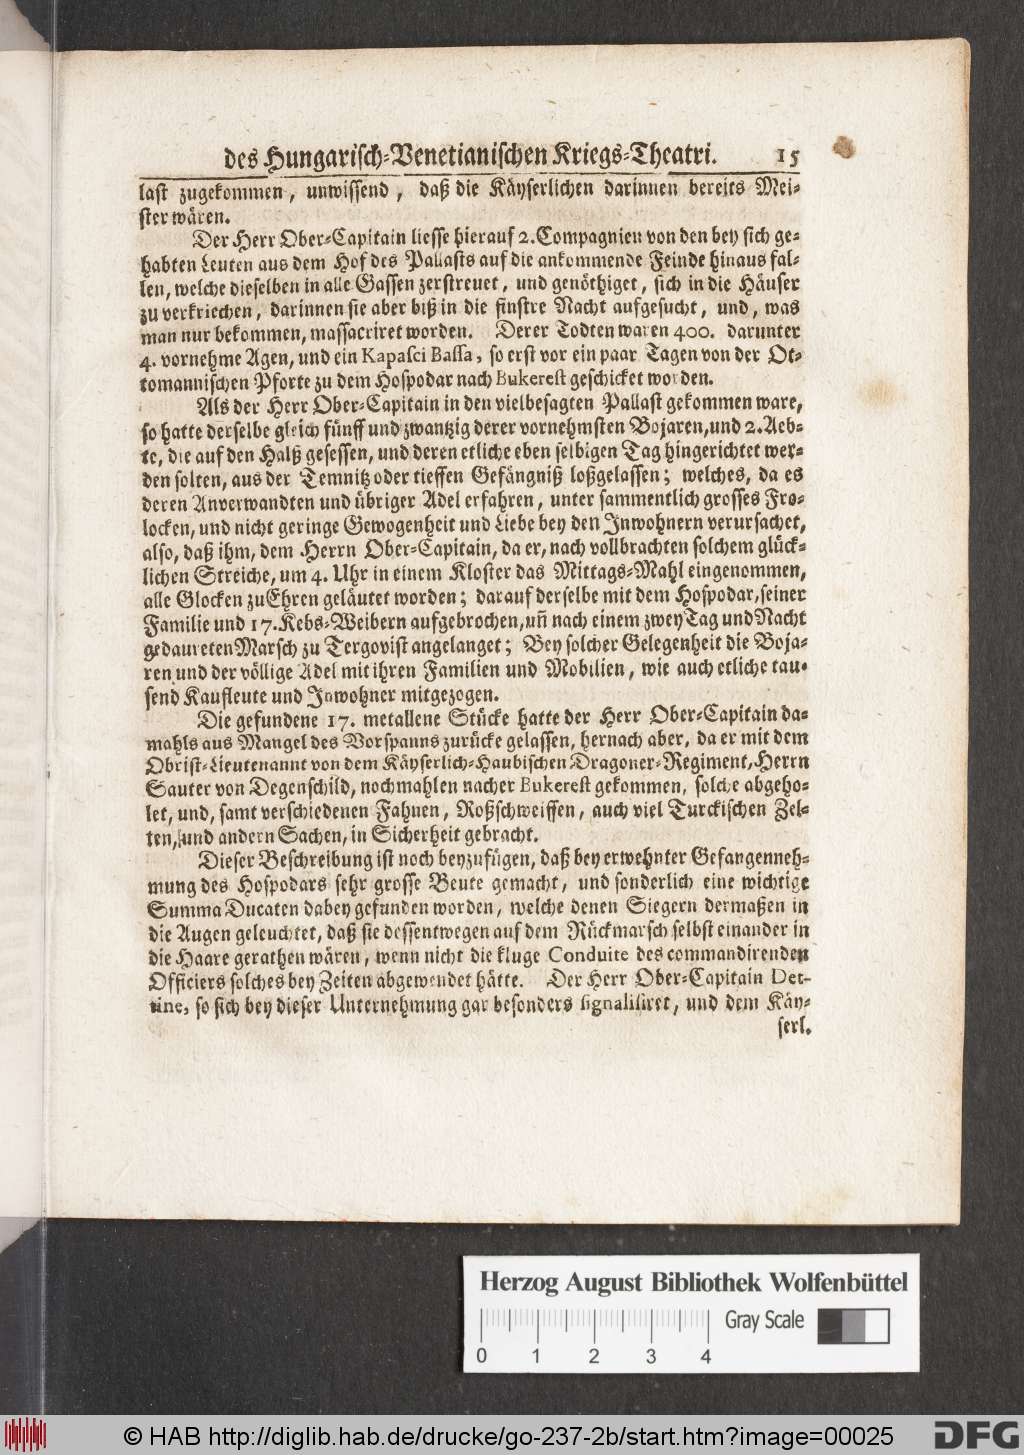 des Hungarisch-Venetianischen Kriegs-Theatri. 15
last zugekommen, unwissend, daß die Käyserlichen darinnen bereits Mei-
ster wären.
Der Herr Ober-Capitain liesse hierauf 2. Compagnien von den bey sich ge-
habten Leuten aus dem Hof des Pallasts auf die ankommende Feinde hinaus fal-
len, welche dieselben in alle Gassen zerstreuet, und genöthiget, sich in die Häuser
zu verkriechen, darinnen sie aber biß in die finstre Nacht aufgesucht, und, was
man nur bekommen, massacriret worden. Derer Todten waren 400. darunter
4. vornehme Agen, und ein Kapasci Bassa, so erst vor ein paar Tagen von der Ot-
tomannischen Pforte zu dem Hospodar nach Bukerest geschicket worden.
Als der Herr Ober-Capitain in den vielbesagten Pallast gekommen ware,
so hatte derselbe gleich fünff und zwantzig derer vornehmsten Bojaren, und 2. Aeb-
te, die auf den Halß gesessen, und deren etliche eben selbigen Tag hingerichtet wer-
den solten, aus der Temnitz oder tieffen Gefängniß loßgelassen; welches, da es
deren Anverwandten und übriger Adel erfahren, unter sammentlich grosses Fro-
locken, und nicht geringe Gewogenheit und Liebe bey den Inwohnern verursachet,
also, daß ihm, dem Herrn Ober-Capitain, da er, nach vollbrachten solchem glück-
lichen Streiche, um 4. Uhr in einem Kloster das Mittags-Mahl eingenommen,
alle Glocken zu Ehren geläutet worden; darauf derselbe mit dem Hospodar, seiner
Familie und 17. Kebs-Weibern aufgebrochen, uñ nach einem zwey Tag und Nacht
gedaureten Marsch zu Tergovist angelanget; Bey solcher Gelegenheit die Boja-
ren und der völlige Adel mit ihren Familien und Mobilien, wie auch etliche tau-
send Kaufleute und Inwohner mitgezogen.
Die gefundene 17. metallene Stücke hatte der Herr Ober-Capitain da-
mahls aus Mangel des Vorspanns zurücke gelassen, hernach aber, da er mit dem
Obrist-Lieutenannt von dem Käyserlich-Haubischen Dragoner-Regiment, Herrn
Sauter von Degenschild, nochmahlen nacher Bukerest gekommen, solche abgeho-
let, und, samt verschiedenen Fahnen, Roßschweiffen, auch viel Turckischen Zel-
ten, und andern Sachen, in Sicherheit gebracht.
Dieser Beschreibung ist noch beyzufügen, daß bey erwehnter Gefangenneh-
mung des Hospodars sehr grosse Beute gemacht, und sonderlich eine wichtige
Summa Ducaten dabey gefunden worden, welche denen Siegern dermaßen in
die Augen geleuchtet, daß sie dessentwegen auf dem Rückmarsch selbst einander in
die Haare gerathen wären, wenn nicht die kluge Conduite des commandirenden
Officiers solches bey Zeiten abgewendet hätte. Der Herr Ober-Capitain Det-
tine, so sich bey dieser Unternehmung gar besonders signalisiret, und dem Käy-
serl.
Herzog August Bibliothek Wolfenbüttel
Gray Scale
0 1 2 3 4
© HAB http://diglib.hab.de/drucke/go-237-2b/start.htm?image=00025
DFG